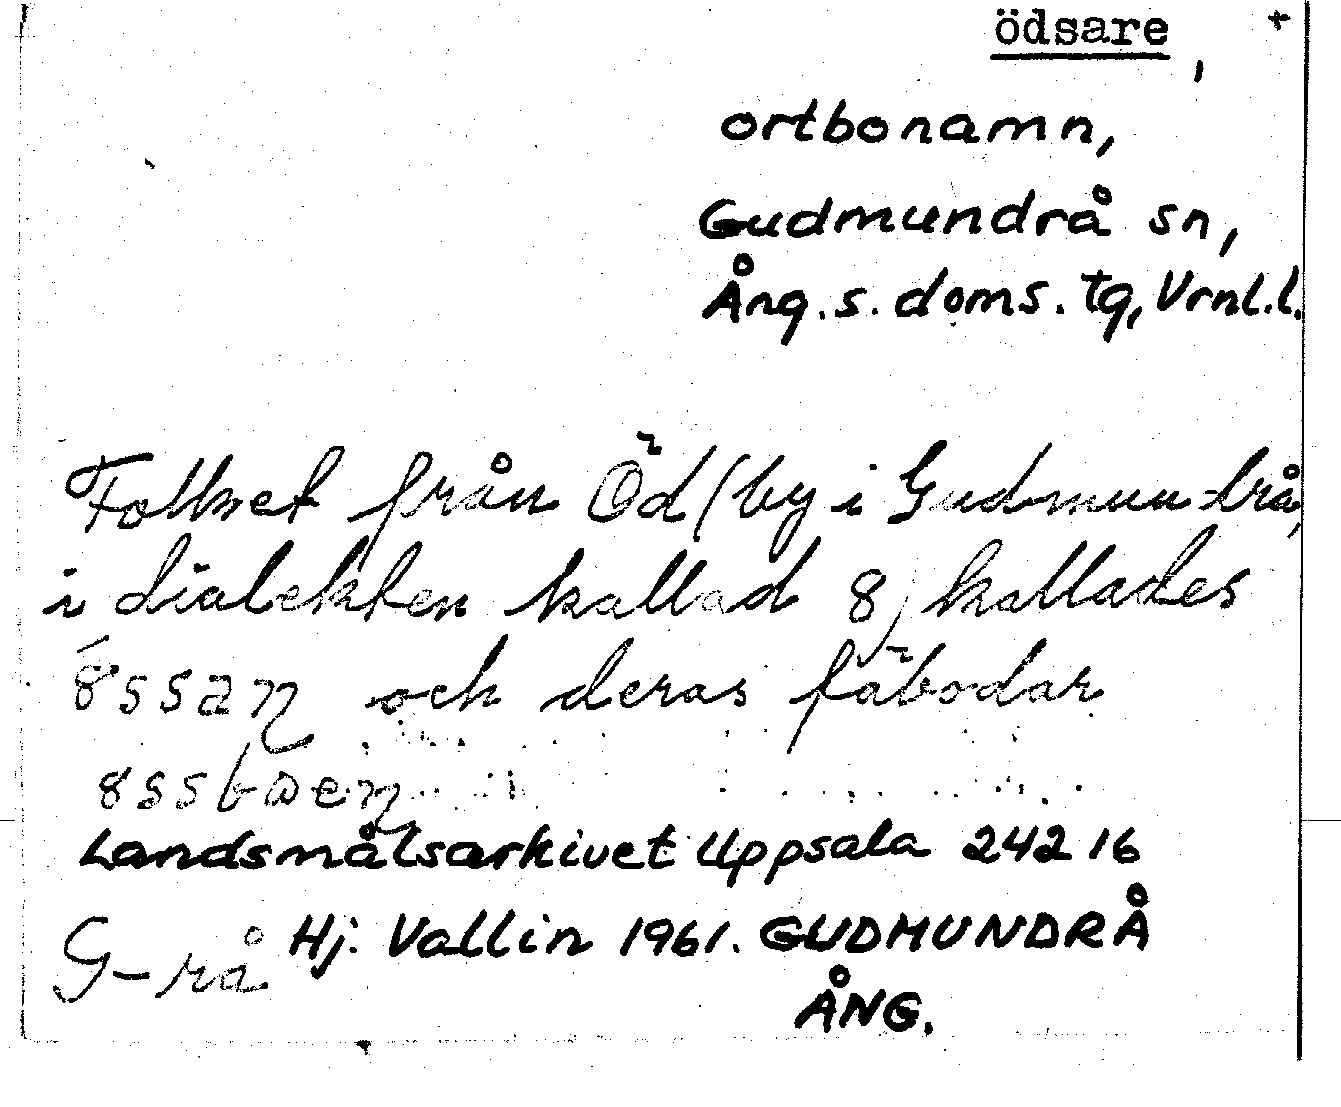 ödsare, +
ortbonamn,
Gudmundrå sn,
Ång. s. doms. tg, Vrnl. l.
Folket från Öd (by i Gudmundrå,
i dialekten kallad 8, kallades
och deras fäbodar
Landsmålsarkivet Uppsala 242 16
G-rå Hj. Vallin 1961. GUDMUNDRÅ
ÅNG.